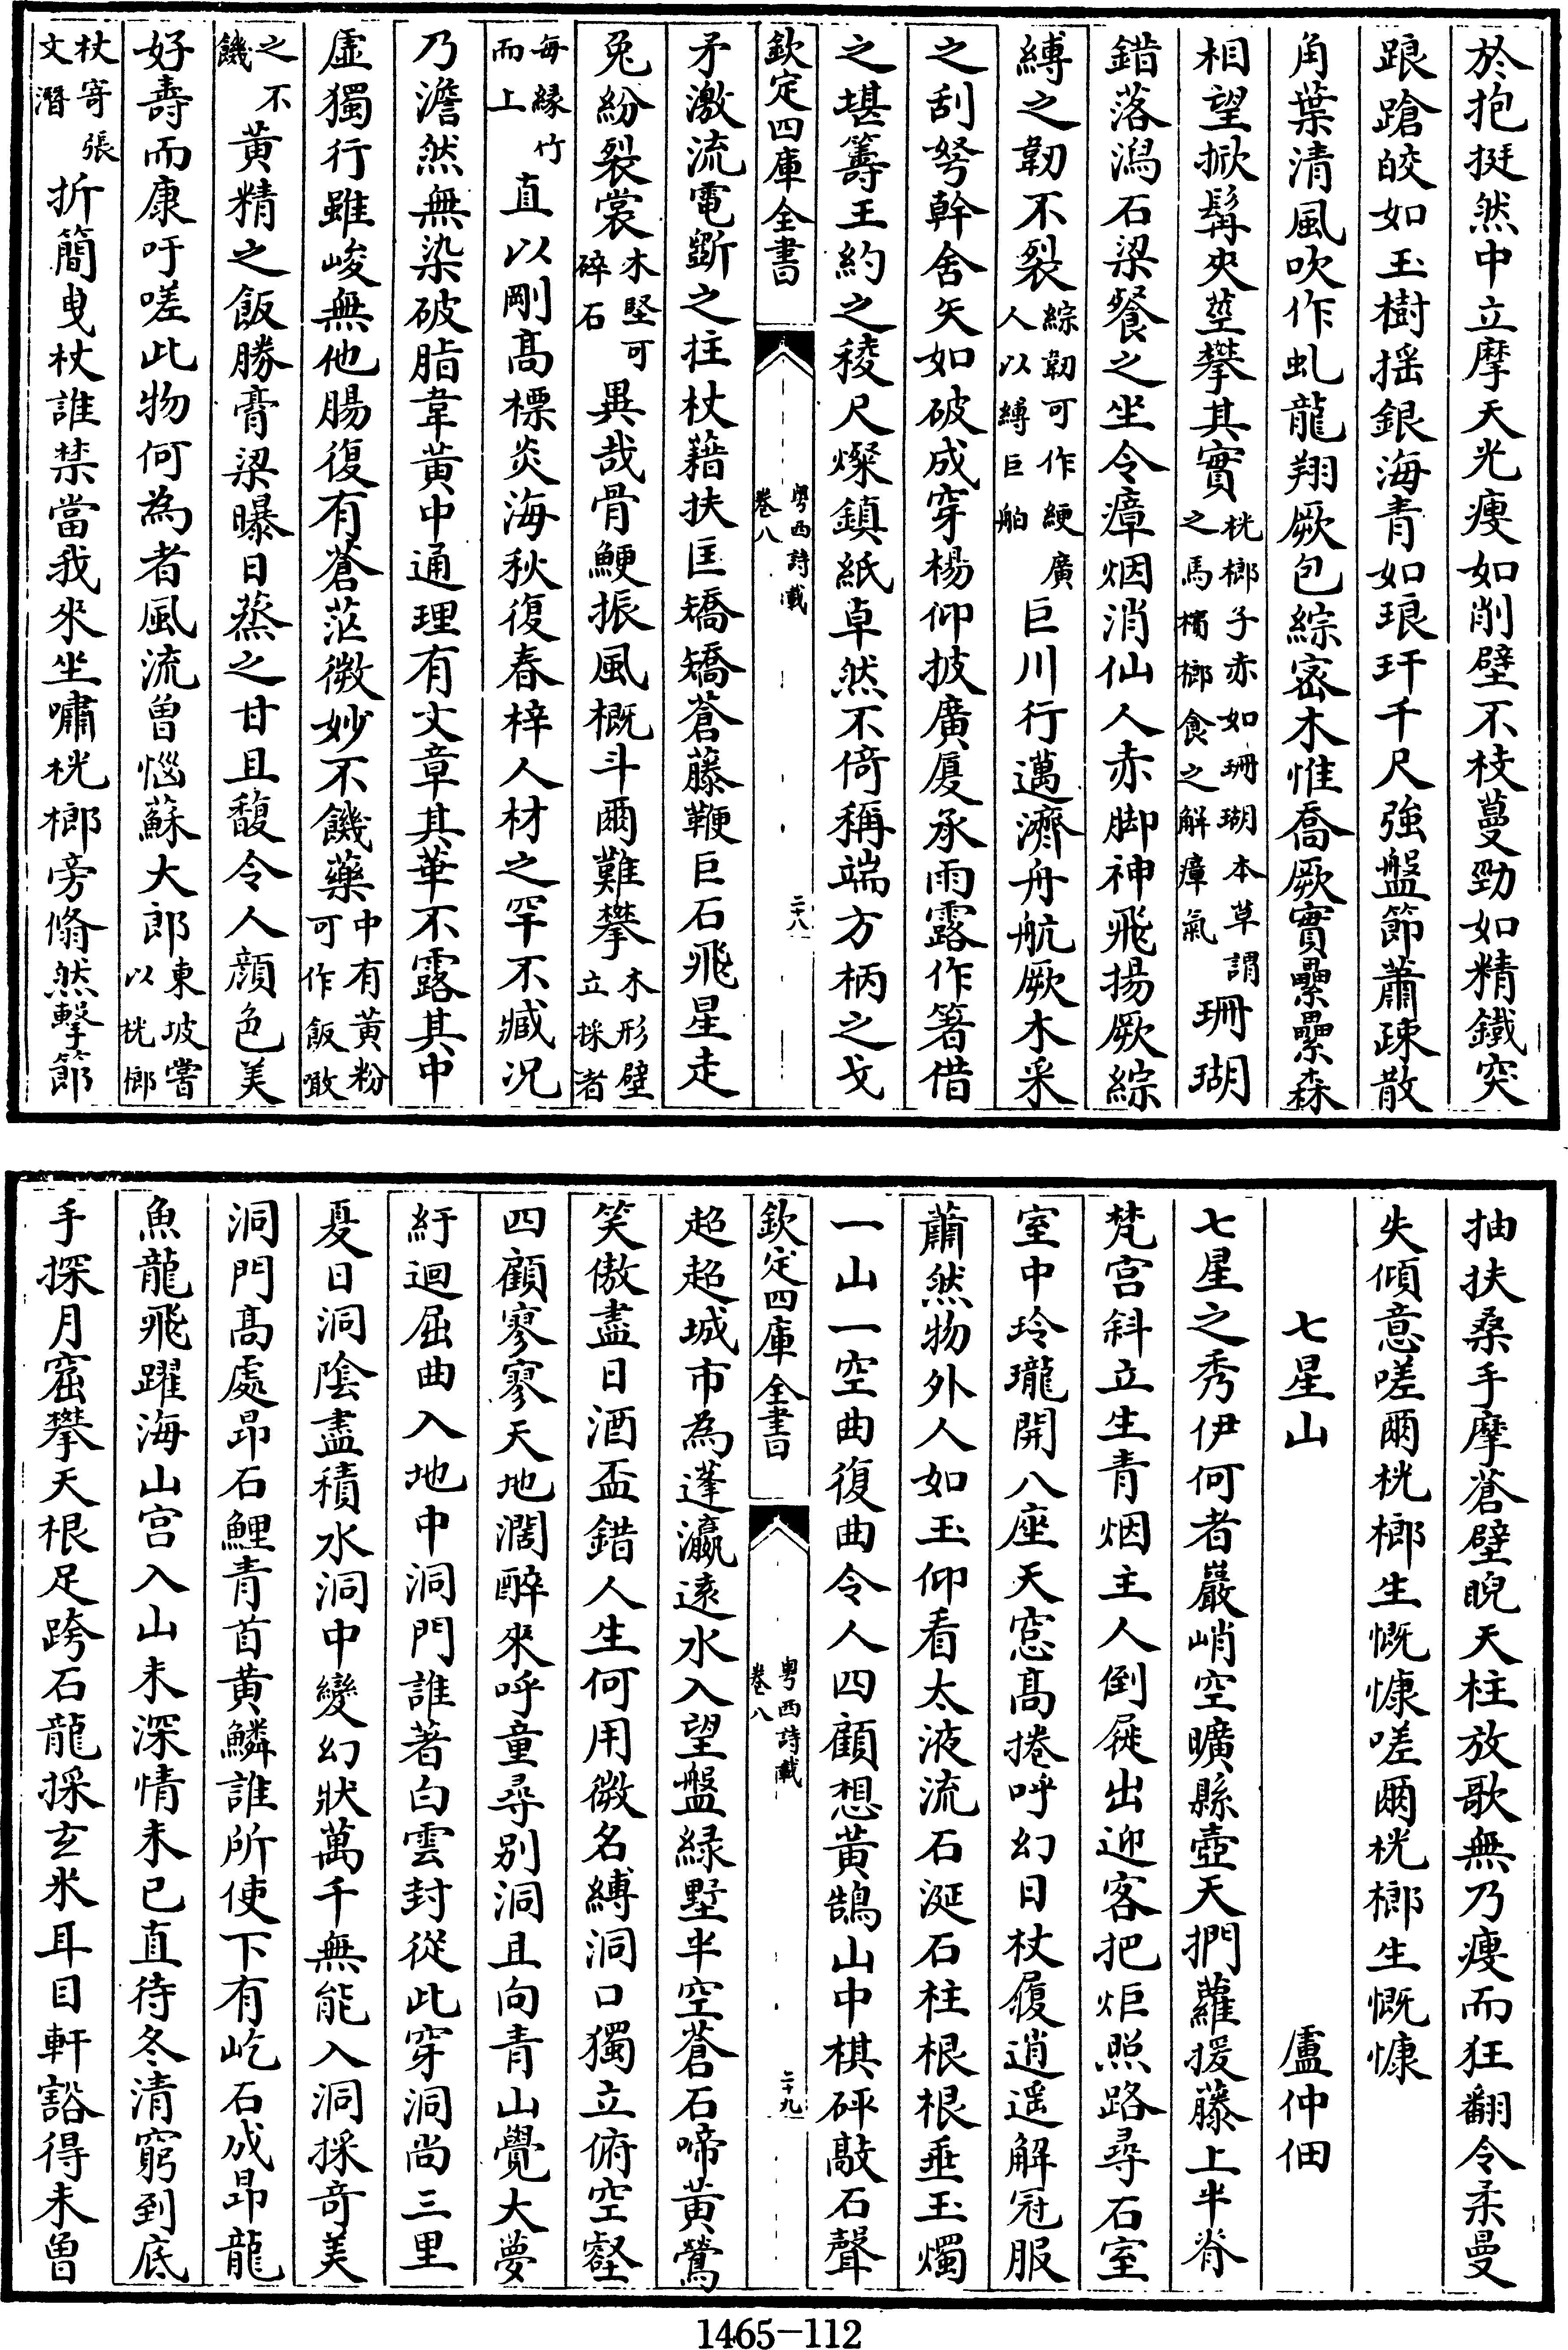 於抱挺然中立摩天光瘦如削壁不枝蔓勁如精鐵突
踉蹌皎如玉樹揺銀海青如琅玕千尺強盤節蕭疎散
角葉清風吹作虬龍翔厥包綜密木惟喬厥實纍纍森
相望掀髯夾莖攀其實桄榔子赤如珊瑚本草謂之馬檳榔食之解瘴氣珊瑚
錯落潟石梁餐之坐令瘴烟消仙人赤脚神飛揚厥綜
縛之韌不裂綜韌可作綆廣人以縛巨舶巨川行邁濟舟航厥木采
之刮弩幹舍矢如破成穿楊仰披廣厦承雨露作箸借
之堪籌王約之稜尺燦鎮紙卓然不倚稱端方柄之戈
欽定四庫全書
粤西詩載
卷八
二十八
矛激流電斲之拄杖藉扶匡矯矯蒼藤鞭巨石飛星走
兔紛裂裳木堅可碎石異哉骨鯁振風概斗爾難攀木形壁立採者
每縁竹而上直以剛髙標炎海秋復春梓人材之罕不臧况
乃澹然無染破脂韋黄中通理有文章其華不露其中
虚獨行雖峻無他腸復有蒼茫微妙不饑藥中有黄粉可作飯噉
之不饑黄精之飯勝膏粱曝日蒸之甘且馥令人顔色美
好壽而康吁嗟此物何為者風流曾惱蘇大郎東坡嘗以桄榔
杖寄張文潛折簡曳杖誰禁當我來坐嘯桄榔旁翛然擊節
抽扶桑手摩蒼壁睨天柱放歌無乃痩而狂翻令柔曼
失傾意嗟爾桄榔生慨慷嗟爾桄榔生慨慷
七星山　盧仲佃
七星之秀伊何者巖峭空曠縣壺天捫蘿援藤上半脊
梵宫斜立生青烟主人倒屣出迎客把炬照路尋石室
室中玲瓏開八座天窓髙捲呼幻日杖履逍遥解冠服
蕭然物外人如玉仰看太液流石涎石柱根根垂玉燭
一山一空曲復曲令人四顧想黄鵠山中棋砰敲石聲
欽定四庫全書
粤西詩載
卷八
二十九
超超城市為蓬瀛遠水入望盤緑墅半空蒼石啼黄鶯
笑傲盡日酒盃錯人生何用微名縛洞口獨立俯空壑
四顧寥寥天地濶醉來呼童尋别洞且向青山覺大夢
紆迴屈曲入地中洞門誰著白雲封從此穿洞尚三里
夏日洞陰盡積水洞中變幻狀萬千無能入洞採奇美
洞門髙處昻石鯉青首黄鱗誰所使下有屹石成昻龍
魚龍飛躍海山宫入山未深情未已直待冬清窮到底
手探月窟攀天根足跨石龍採玄米耳目軒豁得未曾
1465-112